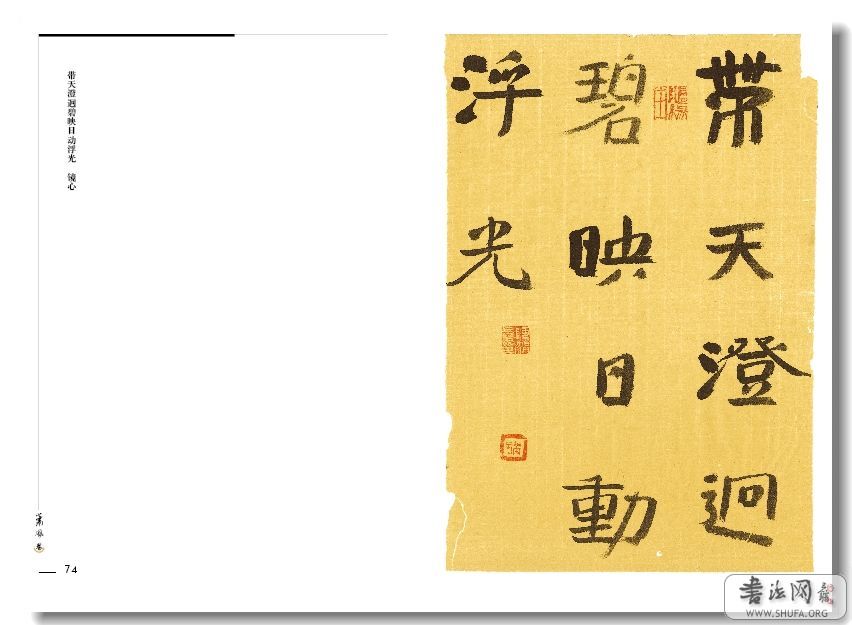 带天澄迥碧映日动浮光 镜心
74
帶天澄迥
碧映日動
浮光
书法网
WWW.SHUFA.ORG